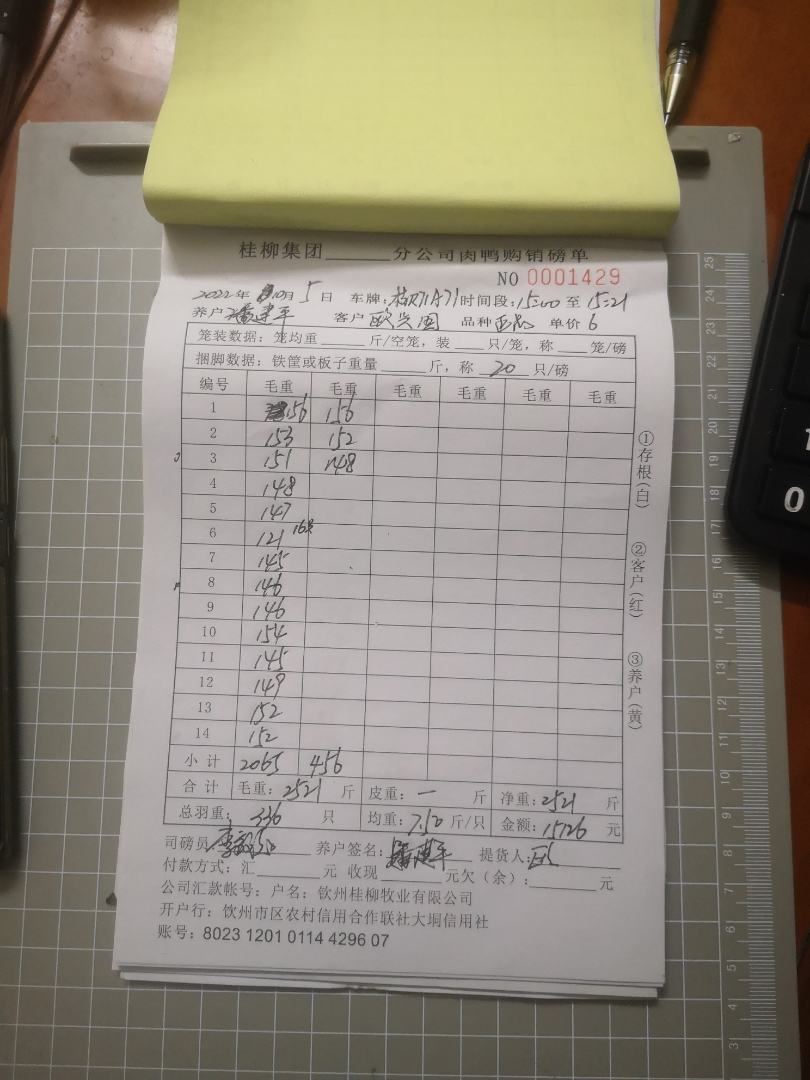 桂柳集团______分公司肉鸭购销磅单
NO 0001429
2022年 10月 5日 车牌: 时间段:15:00 至 15:21
养户 建平 客户 欧兴国 品种 单价 6
笼装数据: 笼均重______斤/空笼, 装____只/笼, 称____笼/磅
捆脚数据: 铁筐或板子重量______斤, 称 20 只/磅
编号 毛重 毛重 毛重 毛重 毛重 毛重
1 156 156
2 153 152
3 151 148
4 148
5 147
6 121 16只
7 145
8 146
9 146
10 154
11 145
12 149
13 152
14 152
小计 2065 456
合计 毛重: 2521 斤 皮重: — 斤 净重: 2521 斤
总羽重: 336 只 均重: 7.50 斤/只 金额: 15126 元
司磅员: 养户签名: 提货人:
付款方式: 汇______元 收现______元欠(余):______元
公司汇款帐号: 户名: 钦州桂柳牧业有限公司
开户行: 钦州市区农村信用合作联社大垌信用社
账号: 8023 1201 0114 4296 07
①存根(白)
②客户(红)
③养户(黄)
25
24
23
22
21
20
19
18
17
16
15
14
13
12
11
10
9
8
7
6
5
4
3
1
0